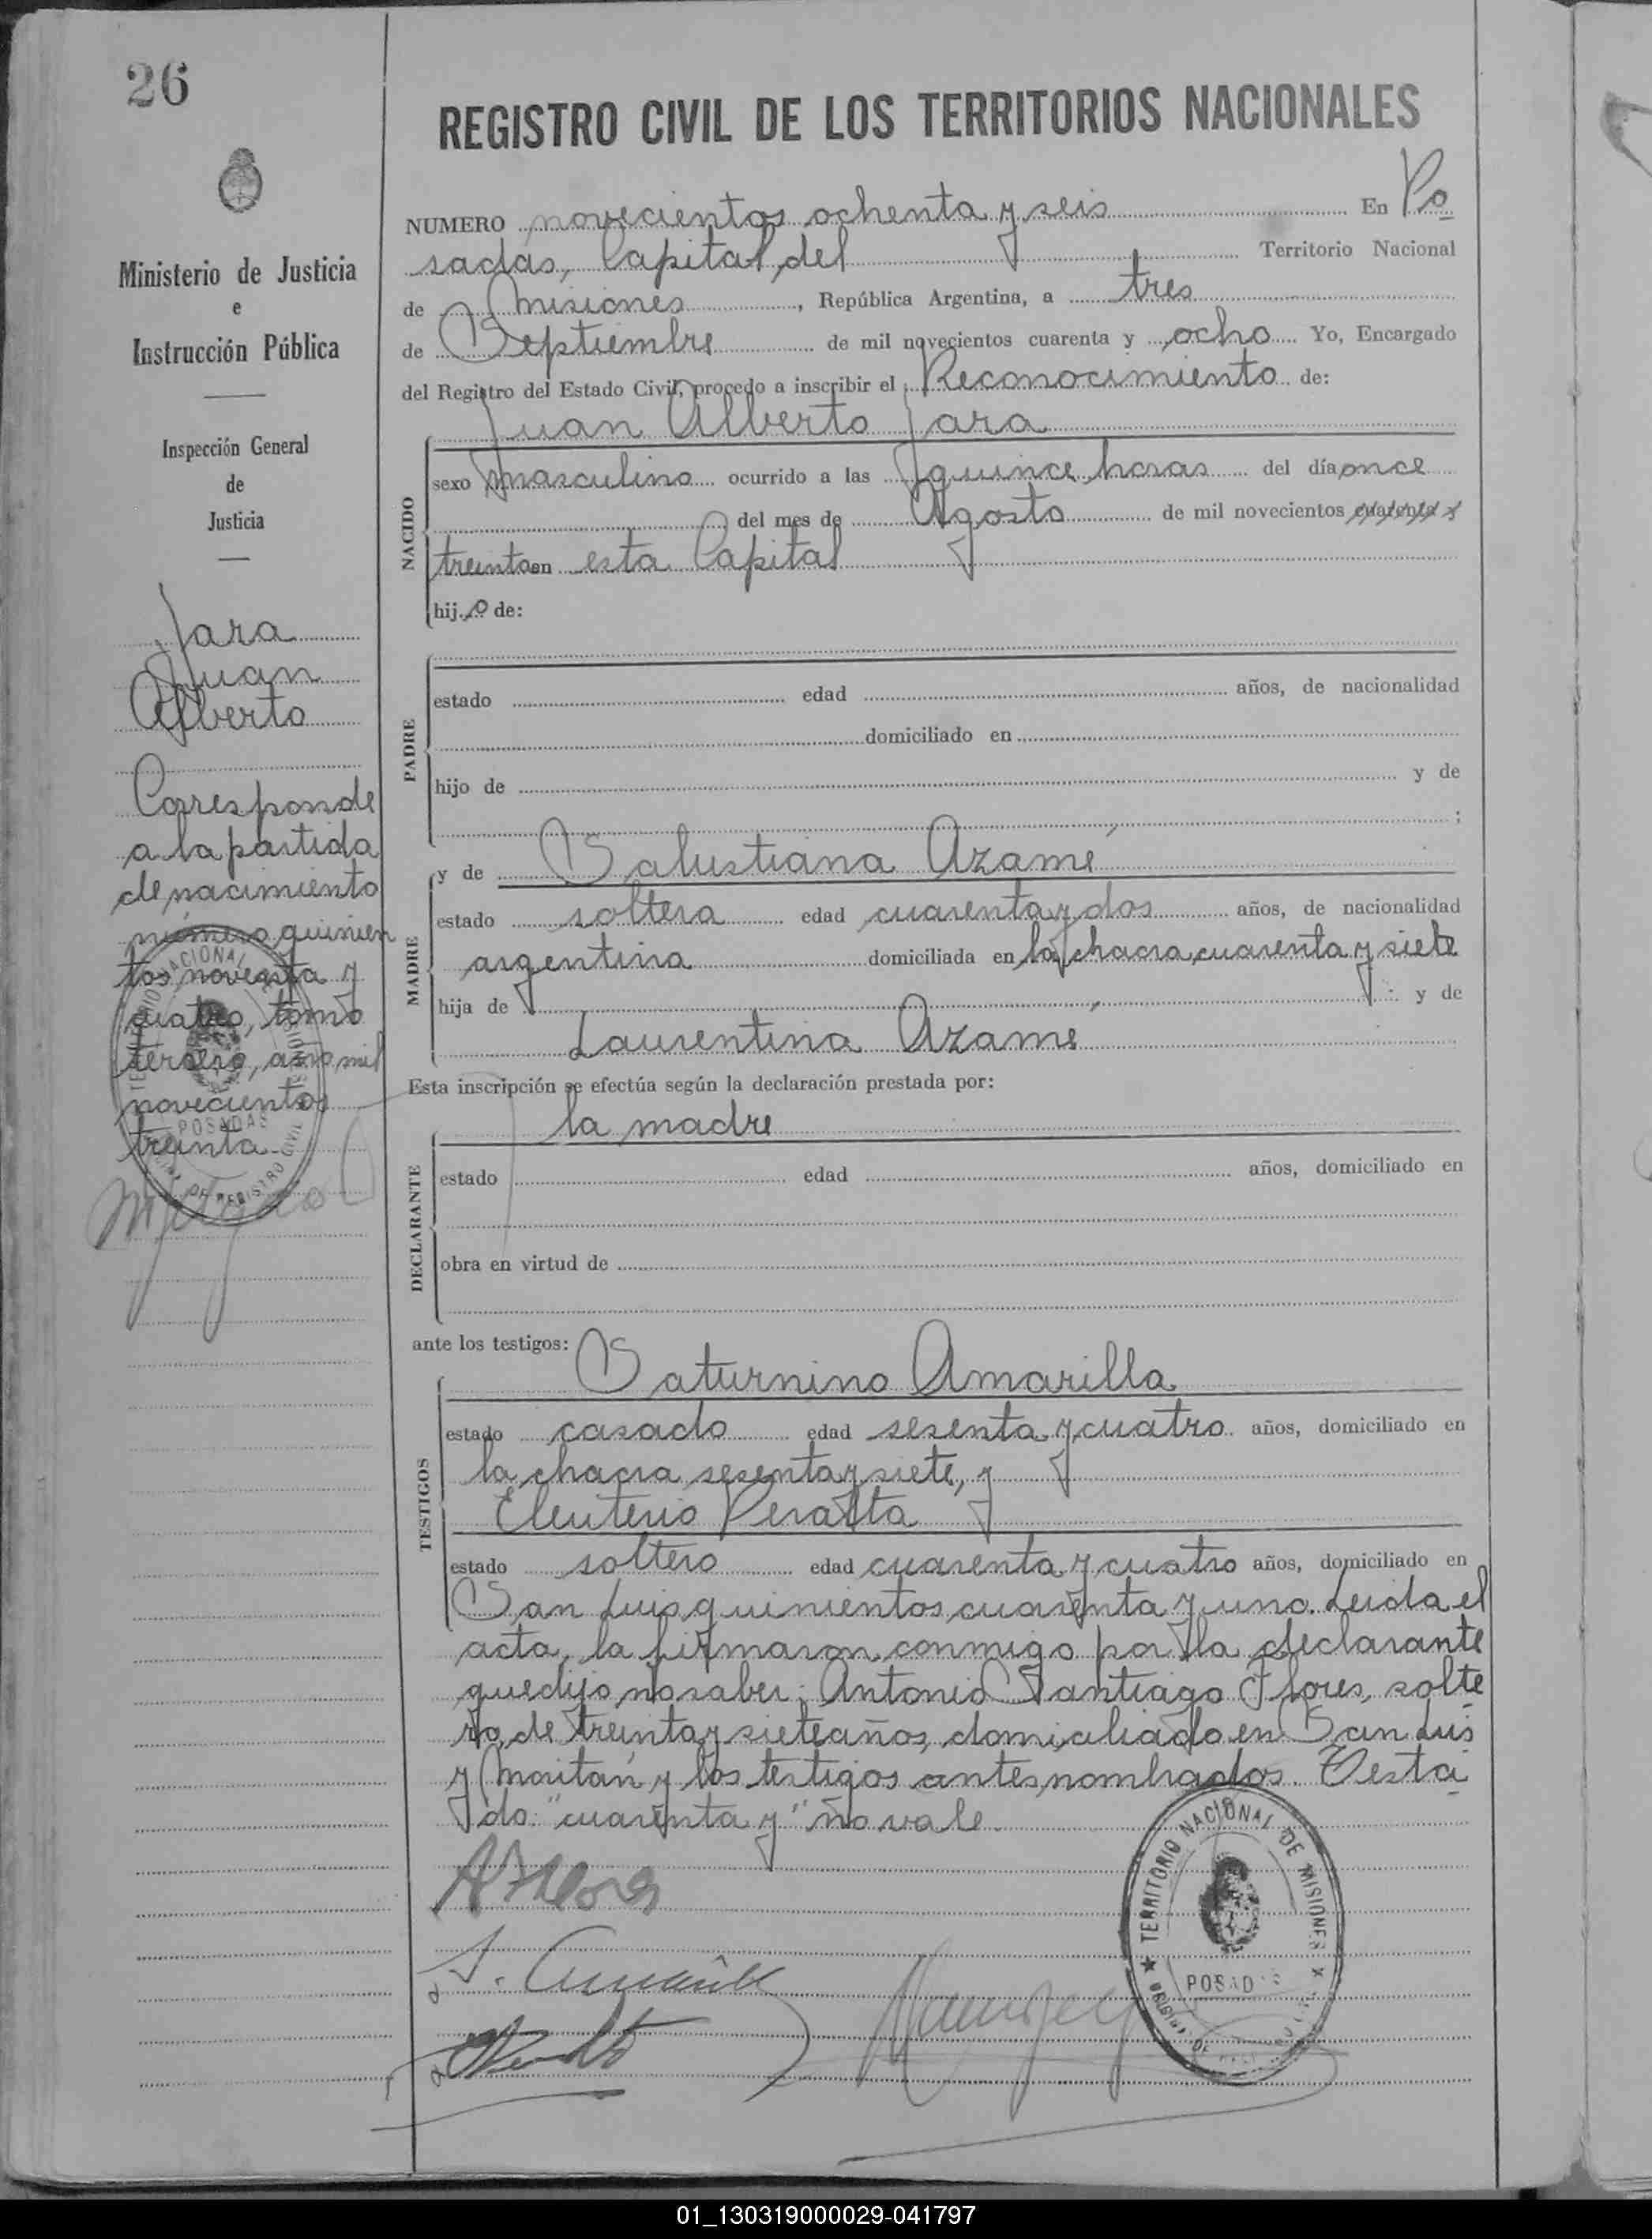 26
Ministerio de Justicia
e
Instrucción Pública
Inspección General
de
Justicia
Jara
Juan
Alberto
Corresponde
a la partida
de nacimiento
número quinien
tos noventa y
cuatro, tomo
tercero, año mil
novecientos
treinta.
POSADAS
REGISTRO CIVIL DE LOS TERRITORIOS NACIONALES
NUMERO novecientos ochenta y seis En Po
sadas, Capital del Territorio Nacional
de Misiones, República Argentina, a tres
de Septiembre de mil novecientos cuarenta y ocho Yo, Encargado
del Registro del Estado Civil, procedo a inscribir el Reconocimiento de:
Juan Alberto Jara
NACIDO
sexo masculino ocurrido a las quince horas del día once
del mes de Agosto de mil novecientos cuarenta y
treinta en esta Capital
hijo de:
PADRE
estado edad años, de nacionalidad
domiciliado en
hijo de y de
;
y de Salustiana Azame
MADRE
estado soltera edad cuarenta y dos años, de nacionalidad
argentina domiciliada en la chacra cuarenta y siete
hija de y de
Laurentina Azame
Esta inscripción se efectúa según la declaración prestada por:
la madre
DECLARANTE
estado edad años, domiciliado en
obra en virtud de
ante los testigos:
Saturnino Amarilla
TESTIGOS
estado casado edad sesenta y cuatro años, domiciliado en
la chacra sesenta y siete, y
Eleuterio Peralta
estado soltero edad cuarenta y cuatro años, domiciliado en
San Luis quinientos cuarenta y uno. Leida el
acta, la firmaron conmigo por la declarante
que dijo no saber; Antonio Santiago Flores, solte
ro, de treinta y siete años, domiciliado en San Luis
y Moritán y los testigos antes nombrados. Testa
do: "cuarenta y" no vale.
AFlores
S. Amarilla
TERRITORIO NACIONAL DE MISIONES
POSADAS
01_130319000029-041797